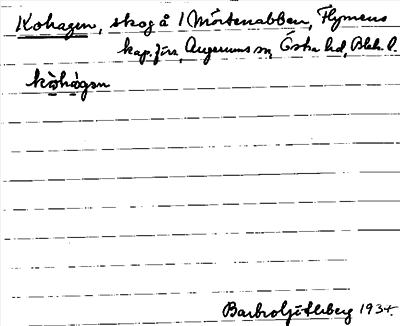 Kohagen, skog å 1 Mörtenabben, Flymens
kap.förs, Augerums sn, Östra hd, Blek. l.
kòhàgən
Barbro Ljüthberg 1934.